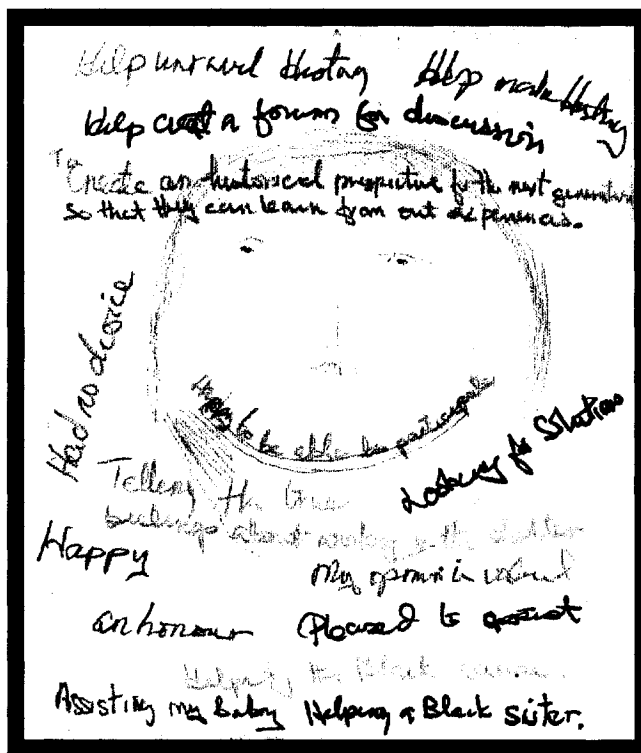 Help unravel History Help make History
Help creat a forum for discussion
To Create an historical prespective for the next generation
so that they can learn from out experiences.
Had no choice
Happy to be able to participate
Looking for Solutions
Telling the true
feelings about working in the
Happy
My opinion is valued
an honour Pleased to assist
Helping the Black
Assisting my Baby Helping a Black sister.